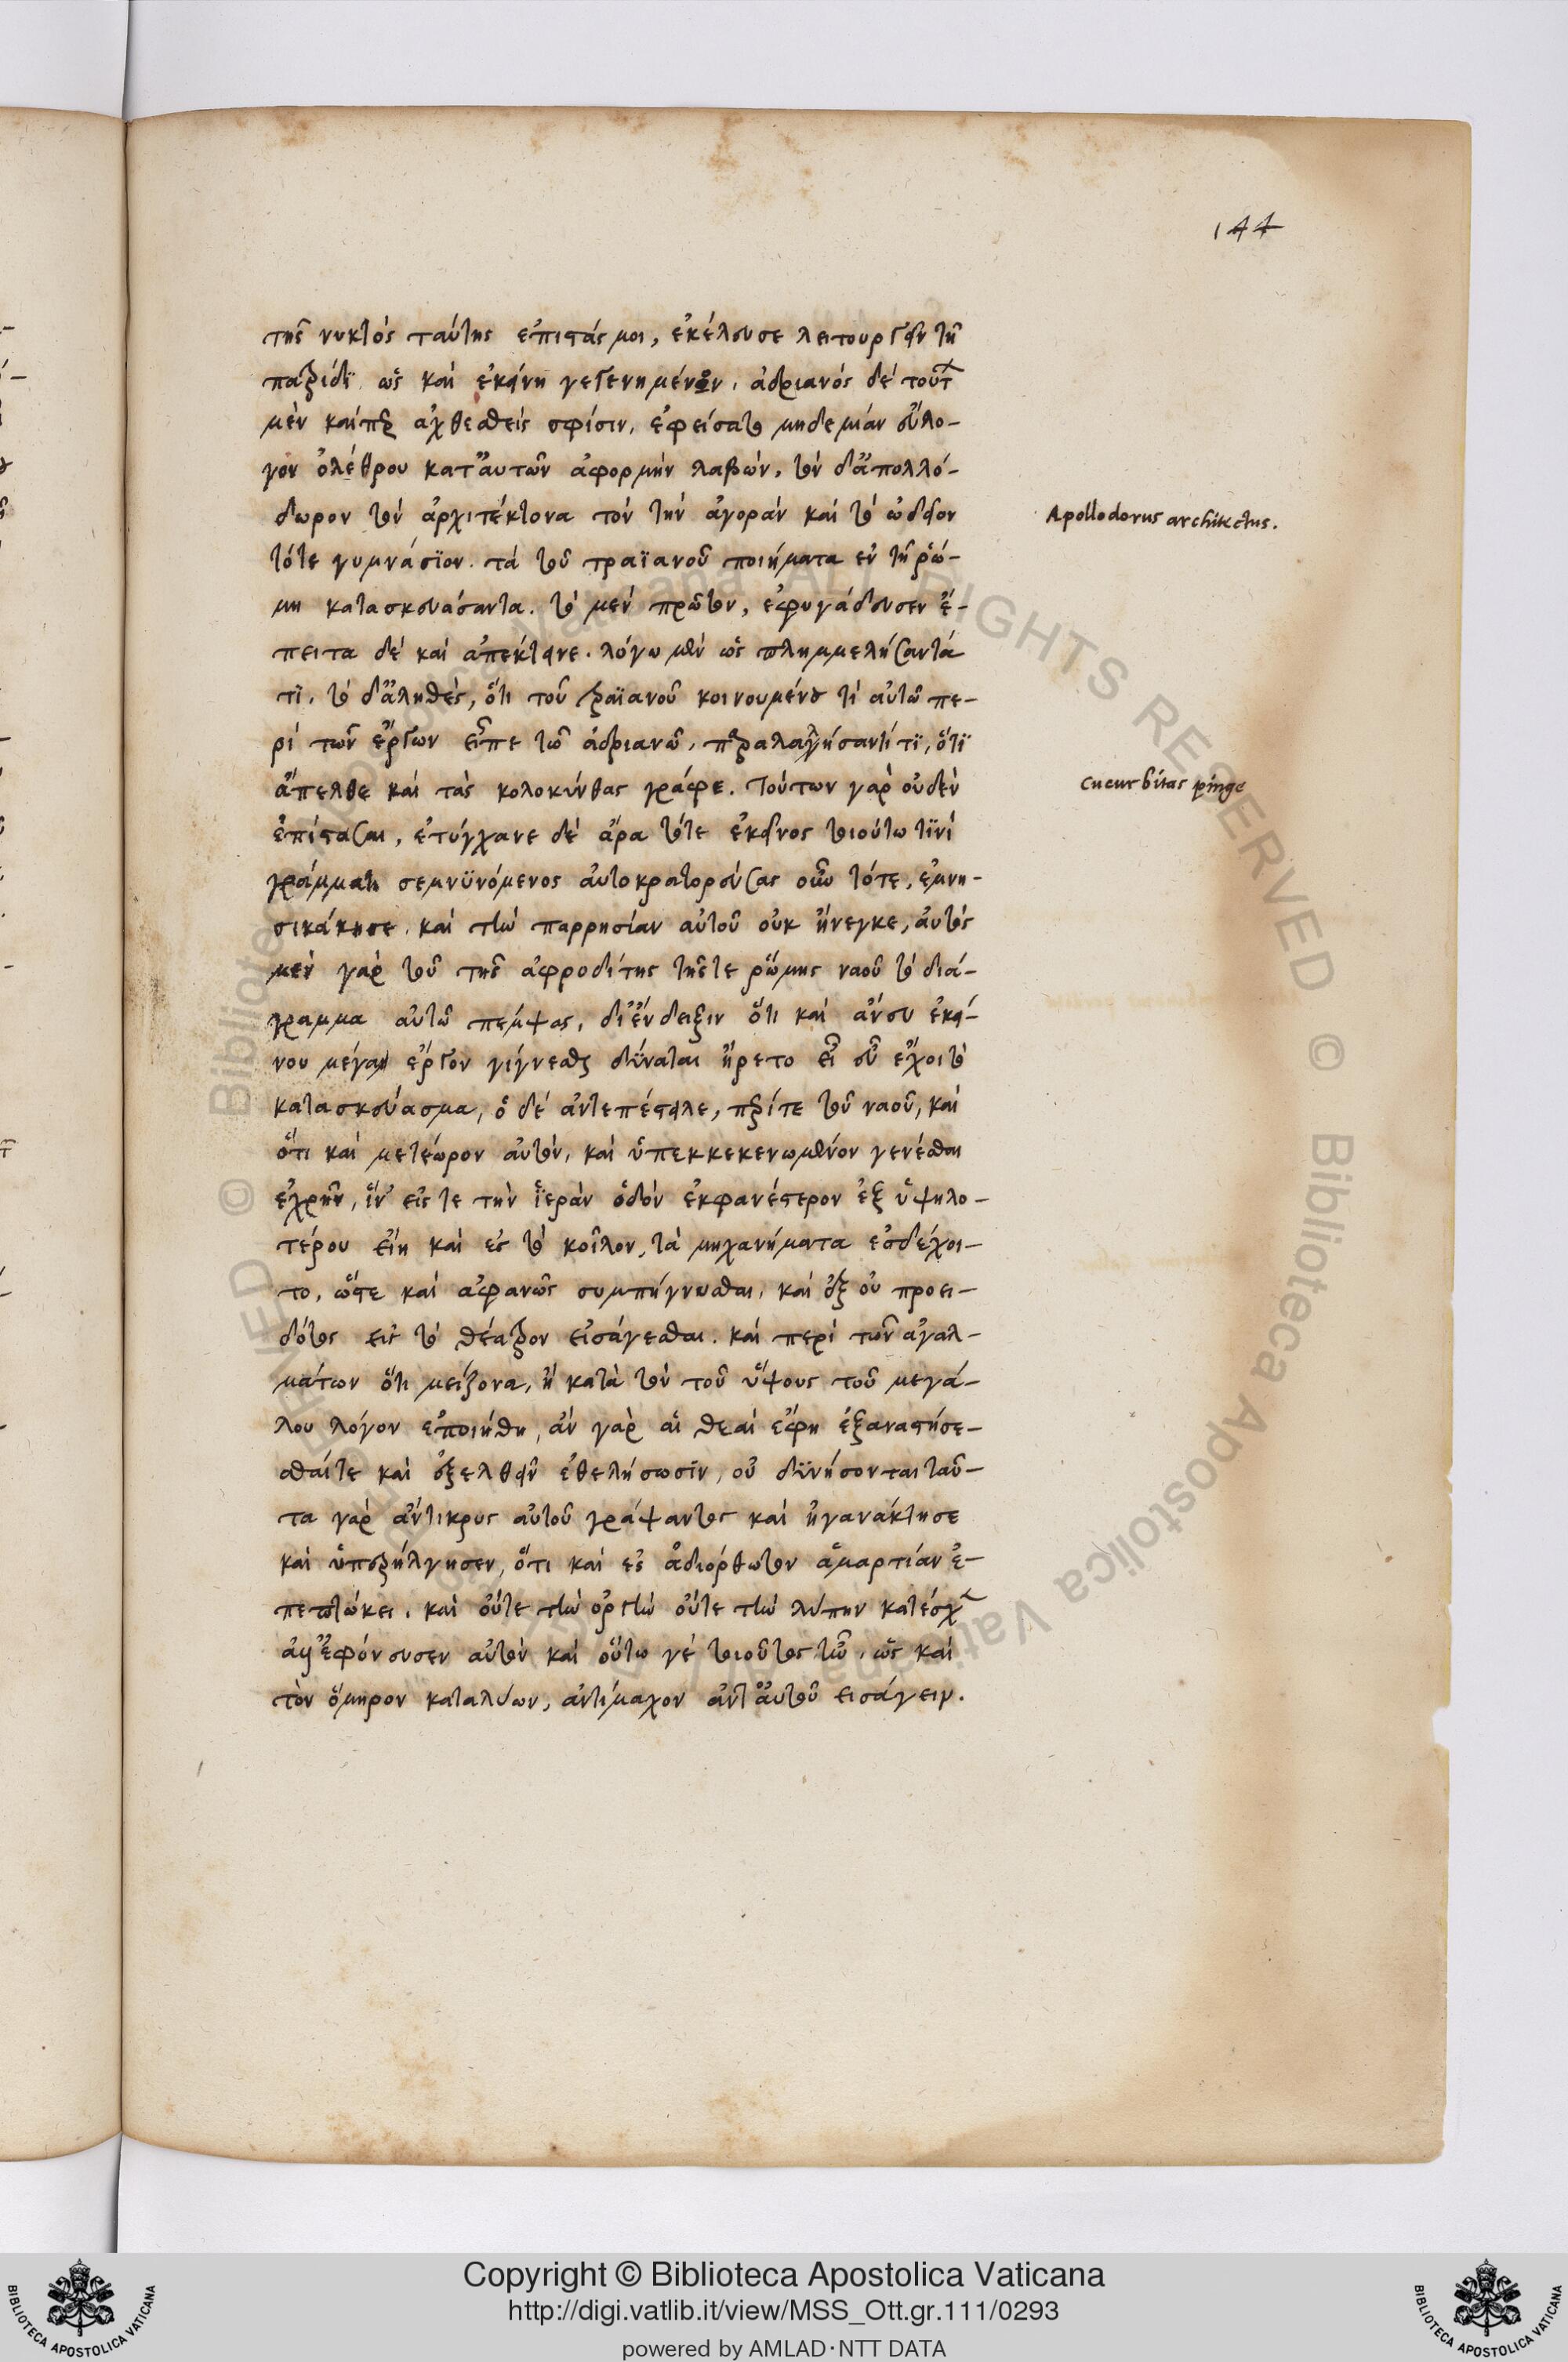 144
τῆς νυκτός ταύτης ἐπιστάς μοι, ἐκέλευσε λειτουργεῖν τῇ
πατρίδϊ ὡς καὶ ἐκείνη γεγενημένον. ἀδριανός δέ τούτ
μέν καίπερ ἀχθεσθείς σφίσιν, ἐφείσατο μηδεμιάν εὔλο-
γον ὀλέθρου κατ' αυτῶν ἀφορμήν λαβών. τόν δ' ἀπολλό-
δωρον τόν ἀρχιτέκτονα τόν τήν ἀγοράν καί τό ὠδεῖον
τότε γυμνάσϊον. τά τοῦ τραϊανοῦ ποιήματα ἐν τῇ ῥώ-
μη κατασκευάσαντα. τό μέν πρῶτον, ἐφυγάδευσεν ἔ-
πειτα δέ καί ἀπέκτεινε. λόγω μέν ὡς πλημμελήσαντά
τϊ. τό δ' ἀληθές, ὅτι τοῦ τραϊανοῦ κοινουμένου τί αὐτῶ πε-
ρί τῶν ἔργων εἶπε τῶ ἀδριανῶ, παραλαλήσαντί τϊ, ὅτϊ
ἄπελθε καί τάς κολοκύνθας γράφε. τούτων γαρ οὐδέν
ἐπίστασαι, ἐτύγχανε δέ ἄρα τότε ἐκεῖνος τοιούτω τϊνί
γράμματι σεμνϋνόμενος αὐτοκρατορεύσας οὖν τότε, ἐμνη-
σικάκησε. καί τήν παρρησίαν αὐτοῦ οὐκ ἤνεγκε, αὐτός
μέν γάρ τοῦ τῆς ἀφροδίτης τῆς τε ῥώμης ναοῦ τό διά-
γραμμα αὐτῶ πέμψας, δι' ἔνδειξιν ὅτι καί ἄνευ ἐκεί-
νου μέγα ἔργον γίγνεσθαι δύναται ἤρετο εἰ εὖ ἔχοι τό
κατασκεύασμα, ὁ δέ ἀντεπέστειλε, περί τε τοῦ ναοῦ, καί
ὅτι καί μετέωρον αὐτόν, καί ὑπεκκεκενωμένον γενέσθαι
ἐχρῆν, ἵν' εἴς τε τήν ἱεράν ὁδόν ἐκφανέστερον ἐξ ὑψηλο-
τέρου εἴη καί ἐς τό κοῖλον, τά μηχανήματα ἐσδέχοι-
το, ὥστε καί ἀφανῶς συμπήγνυσθαι, καί ἐξ οὐ προει-
δότος εἰς τό θέατρον εἰσάγεσθαι. καί περί τῶν ἀγαλ-
μάτων ὅτι μείζονα, ἤ κατά τόν τοῦ ὕψους τοῦ μεγά-
λου λόγον ἐποιήθη, ἄν γάρ αἱ θεαί ἔφη ἐξαναστήσε-
σθαί τε καί ἐξελθεῖν ἐθελήσωσϊν, οὐ δϋνήσονται ταῦ-
τα γάρ ἄντικρυς αὐτοῦ γράψαντος καί ἠγανάκτησε
καί ὑπερήλγησεν, ὅτι καί ἐς ἀδιόρθωτον ἁμαρτίαν ἐ-
πεπτώκει. καί οὔτε τήν ὀργήν οὔτε τήν λύπην κατέσχ
ἀλλ' ἐφόνευσεν αὐτόν καί οὕτω γέ τοιοῦτος ἦν, ὡς καί
τόν ὅμηρον καταλύων, ἀντίμαχον ἀντ' αὐτοῦ εισάγειν.
Apollodorus architectus.
Cucurbitas pinge
Copyright © Biblioteca Apostolica Vaticana
http://digi.vatlib.it/view/MSS_Ott.gr.111/0293
powered by AMLAD·NTT DATA